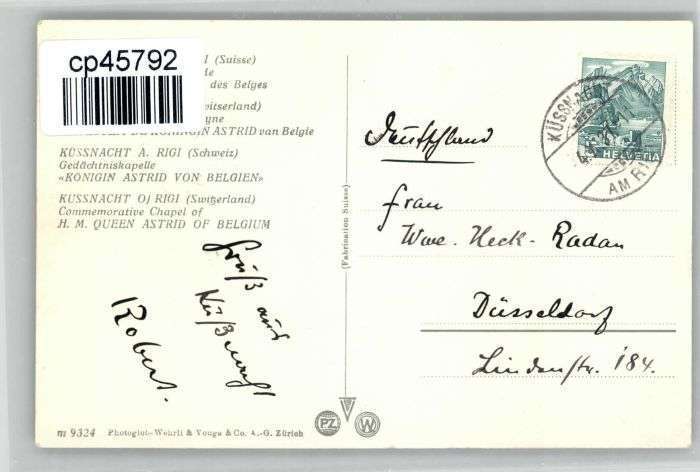 cp45792
I (Suisse)
de
des Belges
itserland)
gne
KONINGIN ASTRID van Belgie
KÜSSNACHT A. RIGI (Schweiz)
Gedächtniskapelle
«KÖNIGIN ASTRID VON BELGIEN»
KUSSNACHT Of RIGI (Switzerland)
Commemorative Chapel of
H. M. QUEEN ASTRID OF BELGIUM
Gruß aus
Küßnacht
Robert.
m 9324 Photoglot-Wehrli & Vouga & Co. A.-G. Zürich
(Fabrication Suisse)
PZ
W
HELVETIA
KÜSSNACHT
AM RIGI
Deutschland
Frau
Wwe. Heck-Radan
Düsseldorf
Lindenstr. 184.